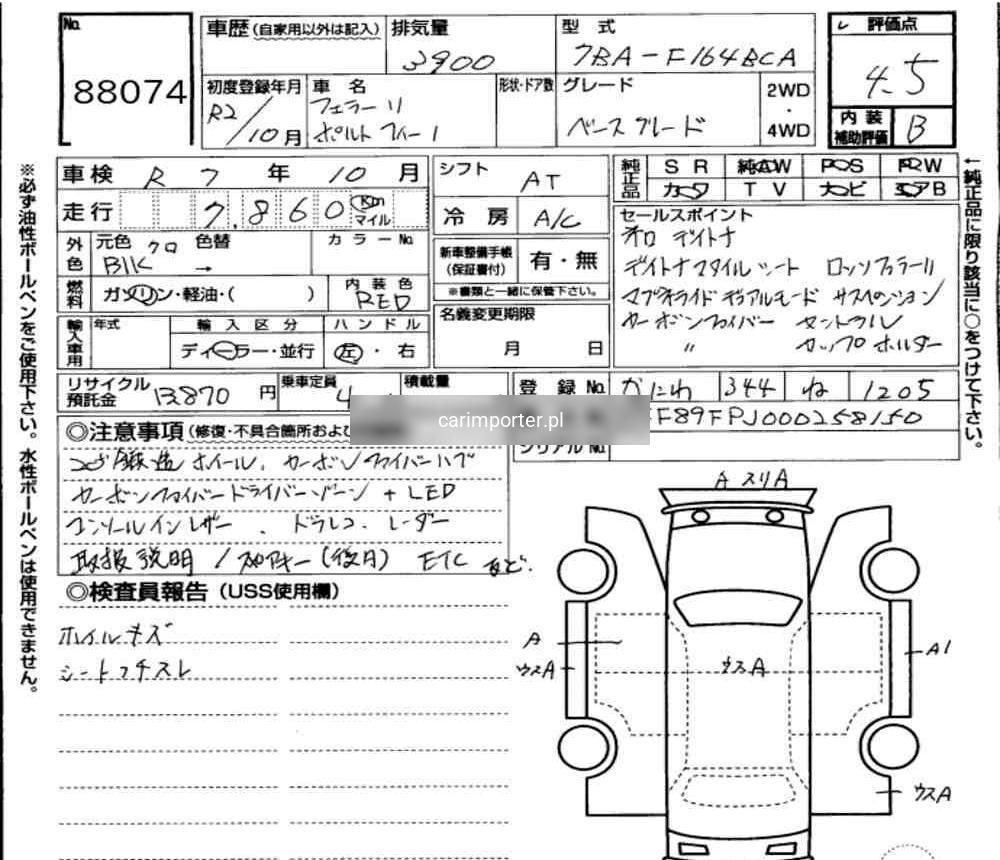 No. 88074
車歴 (自家用以外は記入) 排気量 3900 型式 7BA-F164BCA
初度登録年月 R2/10月 車名 フェラーリ ポルトフィーノ 形状・ドア数 グレード ベースグレード 2WD・4WD
評価点 4.5
内装補助評価 B
車検 R 7 年 10 月
走行 7,860 Km マイル
外色 元色 クロ Blk 色替 → カラーNo.
燃料 ガソリン・軽油・( ) 内装色 RED
輸入車用 年式 輸入区分 ディーラー・並行 ハンドル 左・右
リサイクル預託金 13870 円 乗車定員 4 積載量
シフト AT
冷房 A/C
新車整備手帳 (保証書付) 有・無
※書類と一緒に保管下さい。
名義変更期限 月 日
純正品 SR 純AW PS PW
カワ TV ナビ エアB
セールスポイント
デイトナスタイルシート ロッソフェラーリ
マグネライド デュアルモード サスペンション
カーボンファイバー セントラル
〃 カップホルダー
登録No. なにわ 344 ね 1205
FF89FPJ000258150
シリアルNo.
carimporter.pl
◎注意事項 (修復・不具合箇所および
鍛造ホイール、カーボンファイバーハブ
カーボンファイバードライバーゾーン + LED
コンソールインレザー、ドラレコ、レーダー
取扱説明 / スペアキー (後日) ETC など.
◎検査員報告 (USS使用欄)
ホイルキズ
シートフチスレ
※必ず油性ボールペンをご使用下さい。水性ボールペンは使用できません。
←純正品に限り該当に○をつけて下さい。
A スリA
A
ウスA
ウスA
A1
ウスA